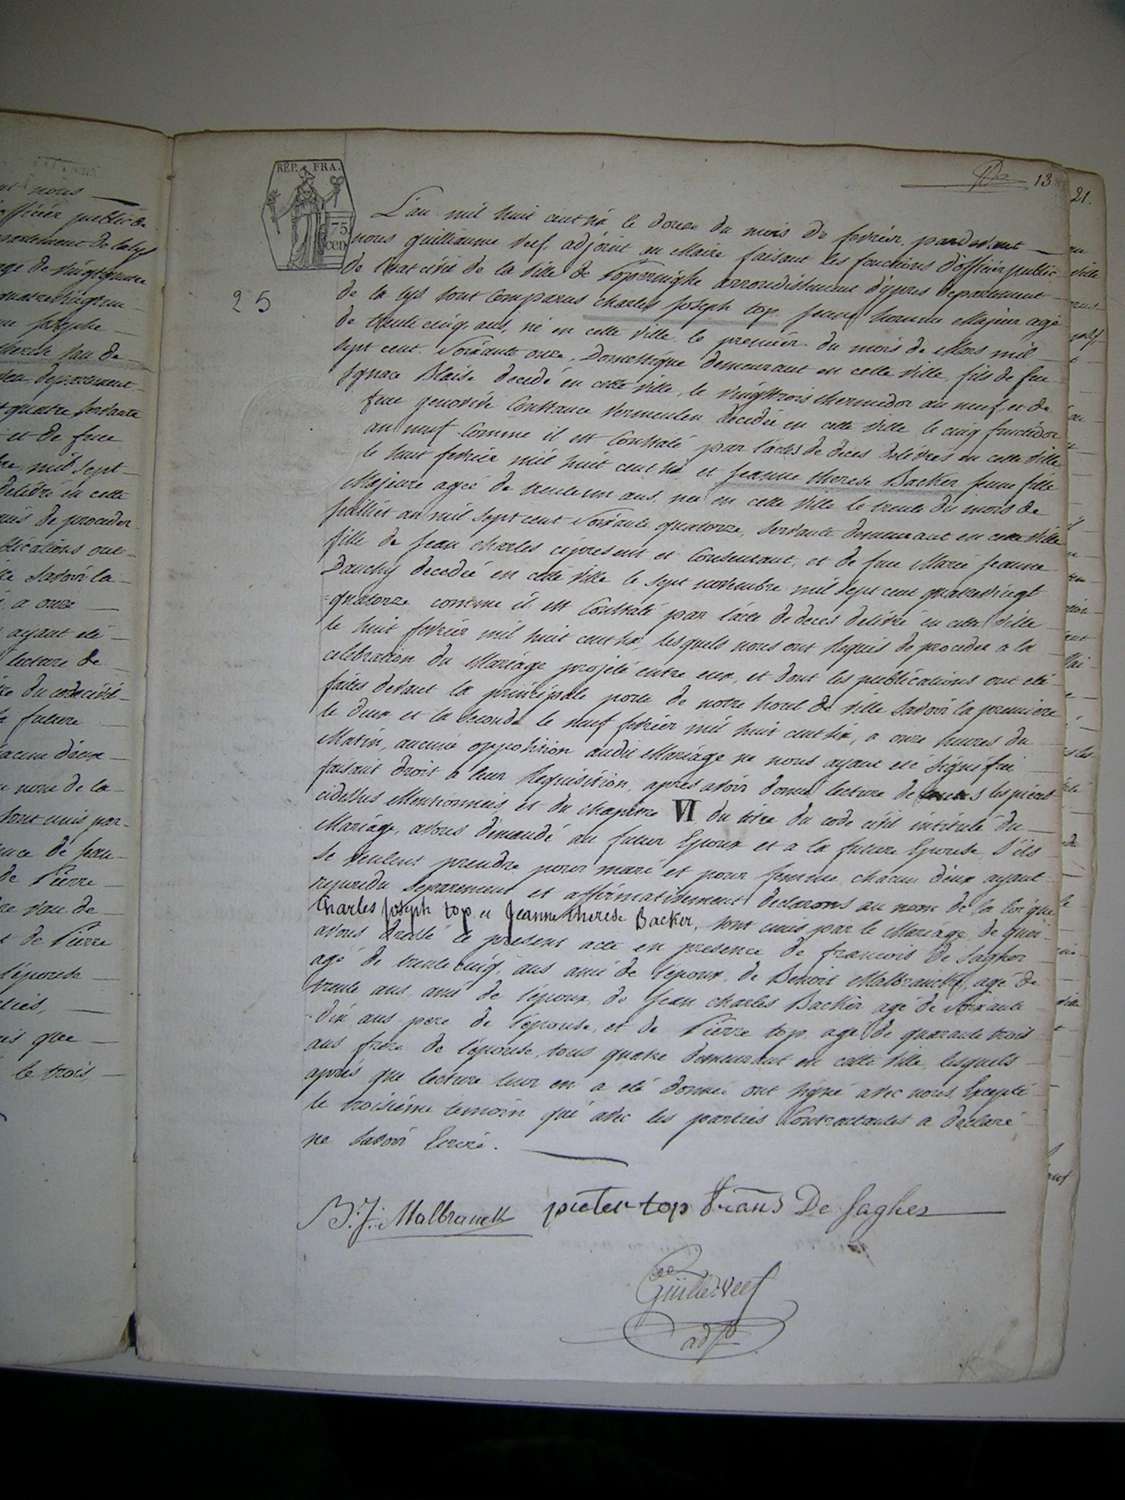 REP. FRA.
75
cen
13
21.
25
L'an mil huit cent six le douze du mois de fevrier, pardevant
nous guilliaume Veef, adjoint au Maire faisant les fonctions d'officier public
de l'état civil de la ville de Poperinghe arrondissement d'ypres departement
de la lys sont comparus charles Joseph top jeune homme Majeur agé
de trente cinq ans, né en cette ville le premier du mois de Mars mil
sept cent Soixante onze, Domestique demeurant en cette ville, fils de feu
Ignace Blaise decedé en cette ville, le vingt trois thermidor an neuf, et de
feue genovive Constance Vermeulen decedée en cette ville le cinq fructidor
an neuf comme il est Constaté par l'actes de deces delivres en cette ville
le huit fevrier mil huit cent six et Jeanne therese Backer jeune fille
Majeure agée de trente un ans, née en cette ville le trente du mois de
Juillet an mil sept cent Soixante quatorze, servante demeurant en cette ville
fille de Jean charles ci present et Consentant, et de feue Marie Jeanne
Dauchy decedée en cette ville le sept novembre mil sept cent quatrevingt
quatorze comme il est Constaté par l'acte de deces delivré en cette ville
le huit fevrier mil huit cent six, lesquels nous ont Requis de proceder a la
celebration du Mariage projeté entre eux, et dont les publications ont eté
faites devant la principale porte de notre hotel de ville savoir la premiere
le deux et la seconde le neuf fevrier mil huit cent six, a onze heures du
Matin, aucune opposition audit Mariage ne nous ayant eté signifiée
faisant droit a leur Requisition, apres avoir donné lecture de toutes les pieces
cidessus Mentionnées et du chapitre VI du titre du code civil intitulé du
Mariage, avons demandé au futur Epoux et a la future Epouse, s'ils
se veulent prendre pour mari et pour femme, chacun d'eux ayant
repondu separement et affirmativement declarons au nom de la loi que
Charles Joseph top et Jeanne therese Backer, sont unis par le Mariage de quoi
avons dressé le present acte en presence de francois de Sagher
agé de trente cinq ans ami de l'epoux, de Benoit Malbranck, agé de
trente ans, ami de l'epoux, de Jean charles Backer agé de Soixante
dix ans pere de l'epouse, et de Pierre top, agé de quarante trois
ans frere de l'epouse, tous quatre demeurant en cette ville, lesquels
apres que lecture leur en a eté donné ont signé avec nous, Excepté
le troisième temoin qui avec les parties Contractantes a declaré
ne savoir Ecrire.
B. J. Malbranck pieter top frans De Sagher
Guille Veef
adjt